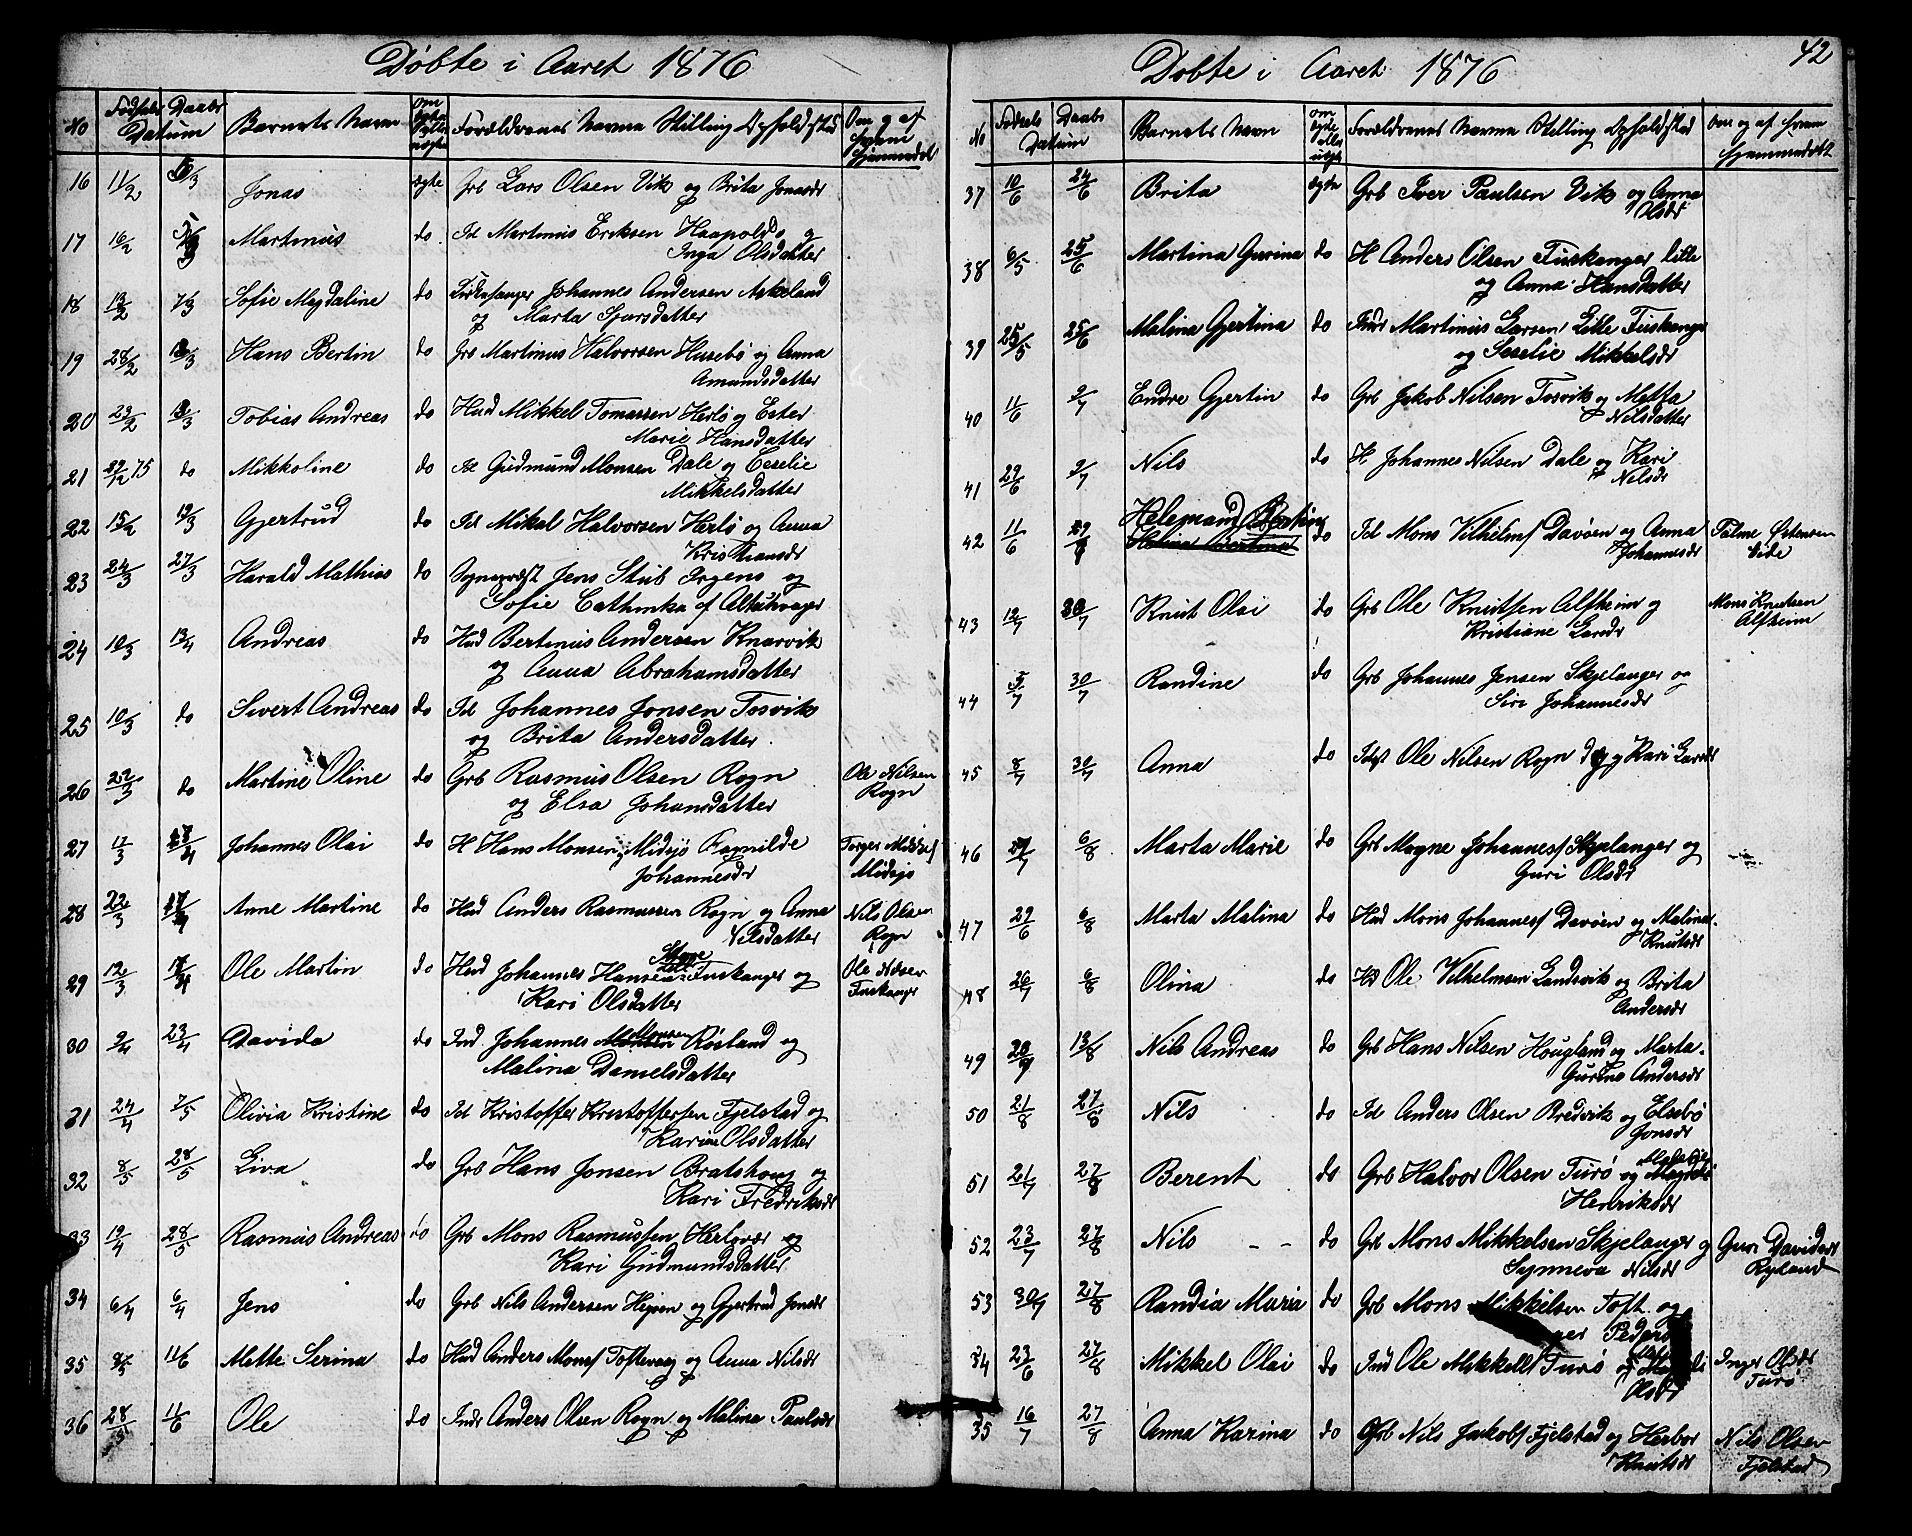 Døbte i Aaret 1876
No Fødsels Daabs Datum Barnets Navn om ægte eller uægte Forældrenes Navne Stilling Opholdsted Om og af hvem hjemmedøbt
16 11/2 5/3 Jonas ægte Grb Lars Olsen Vik og Brita Jonasdr
17 16/2 Martinus do Id Martinus Eriksen Haapolds og
Inga Olsdatter
18 13/2 7/3 Sofie Magdaline do Kirkesanger Johannes Andersen Askeland
og Marta Sjursdatter
19 28/2 Hans Bertin do Grb Martinus Halvorsen Husebø og Anna
Amundsdatter
20 23/2 Tobias Andreas do Husd Mikkel Tomassen Herlø og Ester
Marie Hansdatter
21 22/12 75 do Mikkoline do Gudmund Monsen Dale og Ceselie
Mikkelsdatter
22 15/2 19/3 Gjertrud do Id Mikal Halvorsen Herlø og Anna
Kristiansdr
23 24/3 27/3 Harald Mathias do Sognepræst Jens Stub Irgens og
Sofie Cathinka
24 10/3 13/4 Andreas do Husd Bertinus Andersen Knarvik
og Anna Abrahamsdatter
25 10/3 do Sivert Andreas do Id Johannes Jonsen Tosvik
og Brita Andersdatter
26 22/3 do Martine Oline do Grb Rasmus Olsen Rogn Ole Nilsen
og Elsa Johansdatter Rogn
27 Johannes Olai do H Hans Monsen Midsjø Fagnilde Torger
Johannesdr Midsjø
28 22/3 Anne Martine do Husd Anders Rasmussen Rogn og Anna Nils Olsen
Nilsdatter Rogn
29 12/3 Ole Martin do Husd Johannes Hansen Store Tuskanger og Ole
Kari Olsdatter Tuskanger
30 9/4 23/4 Davida do Ind Johannes Monsen Røsland og
Malina Danielsdatter
31 24/4 7/5 Olivia Kristine do Id Kristoffer Kristoffersen Fjelstad og
Karine Olsdatter
32 8/5 28/5 Liva do Grb Hans Jonsen Bratshoug og
Kari Fredriksdr
33 19/4 28/5 Rasmus Andreas do Grb Mons Rasmussen Herlevær og
Kari Gudmundsdatter
34 6/4 6/4 Jens do Grb Nils Andersen Hegøen og Gjertrud Jonsdr
35 11/6 Mette Serina do Husd Anders Mons/ Toftevaag og Anna Nilsdr
36 28/5 11/6 Ole do Indr Anders Olsen Rogn og Malina Paulsdr
42
Døbte i Aaret 1876
No Fødsels Daabs Datum Barnets Navn om ægte eller uægte Forældrenes Navne Stilling Opholdsted Om og af hvem hjemmedøbt
37 10/6 24/6 Brita ægte Grb Iver Paulsen Vik og Anna
Olsdr
38 6/5 25/6 Martina Gurina do H Anders Olsen Tuskanger lille
og Anna Hansdatter
39 25/5 25/6 Malina Gjertina do Indr Martinus Larsen Lille Tuskanger
og Seselie Mikkelsdr
40 11/6 9/7 Endre Gjertin do Grb Jakob Nilsen Tosvik og Metta
Nilsdatter
41 22/6 9/7 Nils do H Johannes Nilsen Dale og Kari
Nilsdr
Helemand
42 11/6 do Id Mons Vilhelms/ Davøen og Anna Tolme Østensen
Johannesdr Eide
43 12/7 30/7 Knut Olai do Grb Ole Knutsen Alfheim og Mons Knutsen
Kristiane Larsdr Alfheim
44 5/7 30/7 Randine do Grb Johannes Jensen Skjelanger og
Siri Johannesdr
45 8/7 30/7 Anna do Ole Nilsen Rogn og Kari Larsdr
46 6/8 Marta Marie do Grb Magne Johannes/ Skjelanger og
Guri Olsdr
47 29/6 6/8 Marta Malina do Husd Mons Johannes/ Davøen og Malina
Knutsdr
48 26/7 6/8 Olina do Hd Ole Vilhelmsen Landsvik og Brita
Andersdr
49 13/8 Nils Andreas do Grb Hans Nilsen Hougland og Marta
Gurine Andersdr
50 21/8 27/8 Nils do Id Anders Olsen Bredvik og Elsebø
Jonsdr
51 21/7 27/8 Berent do Grb Halvor Olsen Turø og
Henriksdr
52 23/7 27/8 Nils - - do Grb Mons Mikkelsen Skjelanger og Guri Davidsdr
Synneva Nilsdr Ryland
53 30/7 27/8 Randia Maria do Grb Mons Mikkelsen Toft og
Pedersdr
34 23/6 27/8 Mikkel Olai do Ind Ole Mikkels/ Turø og Inger Olsdr
Olsdr Turø
35 16/7 27/8 Anna Karina do Grb Nils Jakobs/ Fjelstad og Herbor Nils Olsen
Knutsdr Fjelstad